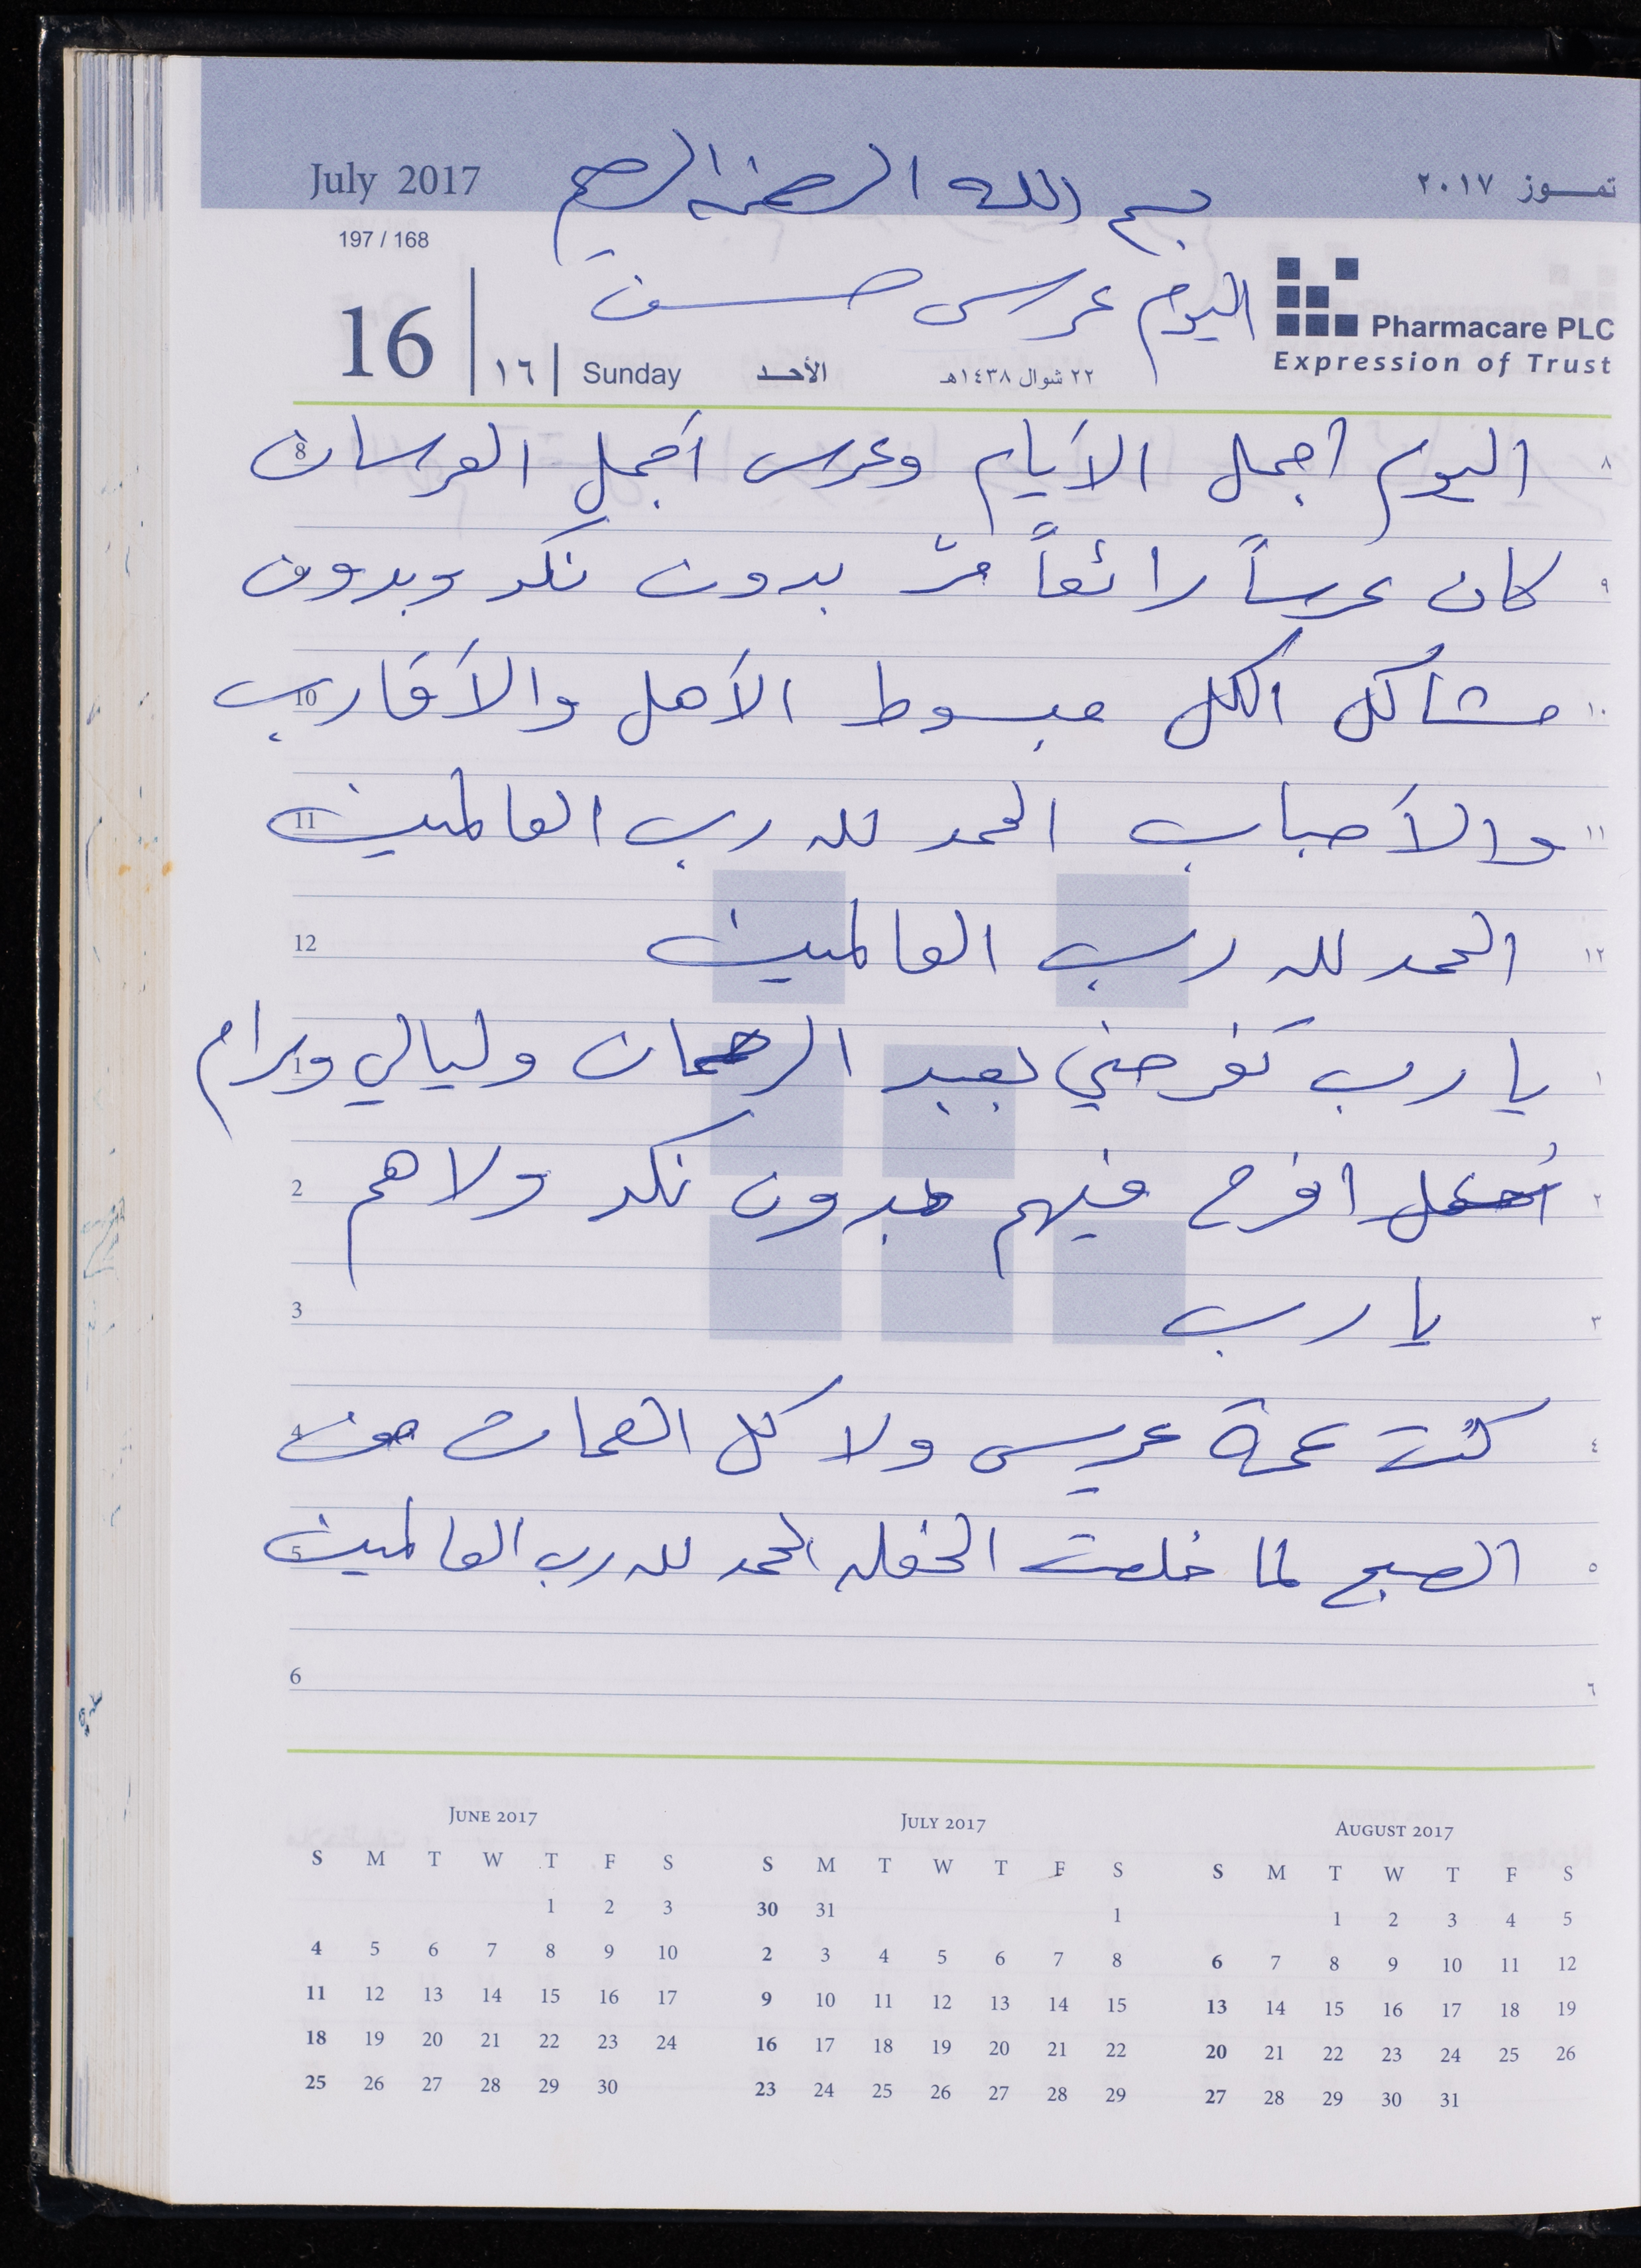 July 2017
بسم الله الرحمن الرحيم
تمـــوز ٢٠١٧
197 / 168
اليوم عرس حسن
Pharmacare PLC
Expression of Trust
16 | ١٦ | Sunday الأحـد ٢٢ شوال ١٤٣٨هـ
8 اليوم أجمل الأيام وعرس أجمل العرسان ٨
9 كان عرساً رائعاً مرّ بدون نكد وبدون ٩
10 مشاكل الكل مبسوط الأهل والأقارب ١٠
11 والأحباب الحمد لله رب العالمين ١١
12 الحمد لله رب العالمين ١٢
1 يا رب تفرحني بعبد الرحمان وليالي ومرام ١
2 افرح فيهم بدون نكد ولا هم ٢
3 يا رب ٣
4 كنت عمة عريس ولا كل العمات من ٤
5 الصبح لما خلصت الحفله الحمد لله رب العالمين ٥
6 ٦
JUNE 2017
S M T W T F S
1 2 3
4 5 6 7 8 9 10
11 12 13 14 15 16 17
18 19 20 21 22 23 24
25 26 27 28 29 30
JULY 2017
S M T W T F S
30 31 1
2 3 4 5 6 7 8
9 10 11 12 13 14 15
16 17 18 19 20 21 22
23 24 25 26 27 28 29
AUGUST 2017
S M T W T F S
1 2 3 4 5
6 7 8 9 10 11 12
13 14 15 16 17 18 19
20 21 22 23 24 25 26
27 28 29 30 31